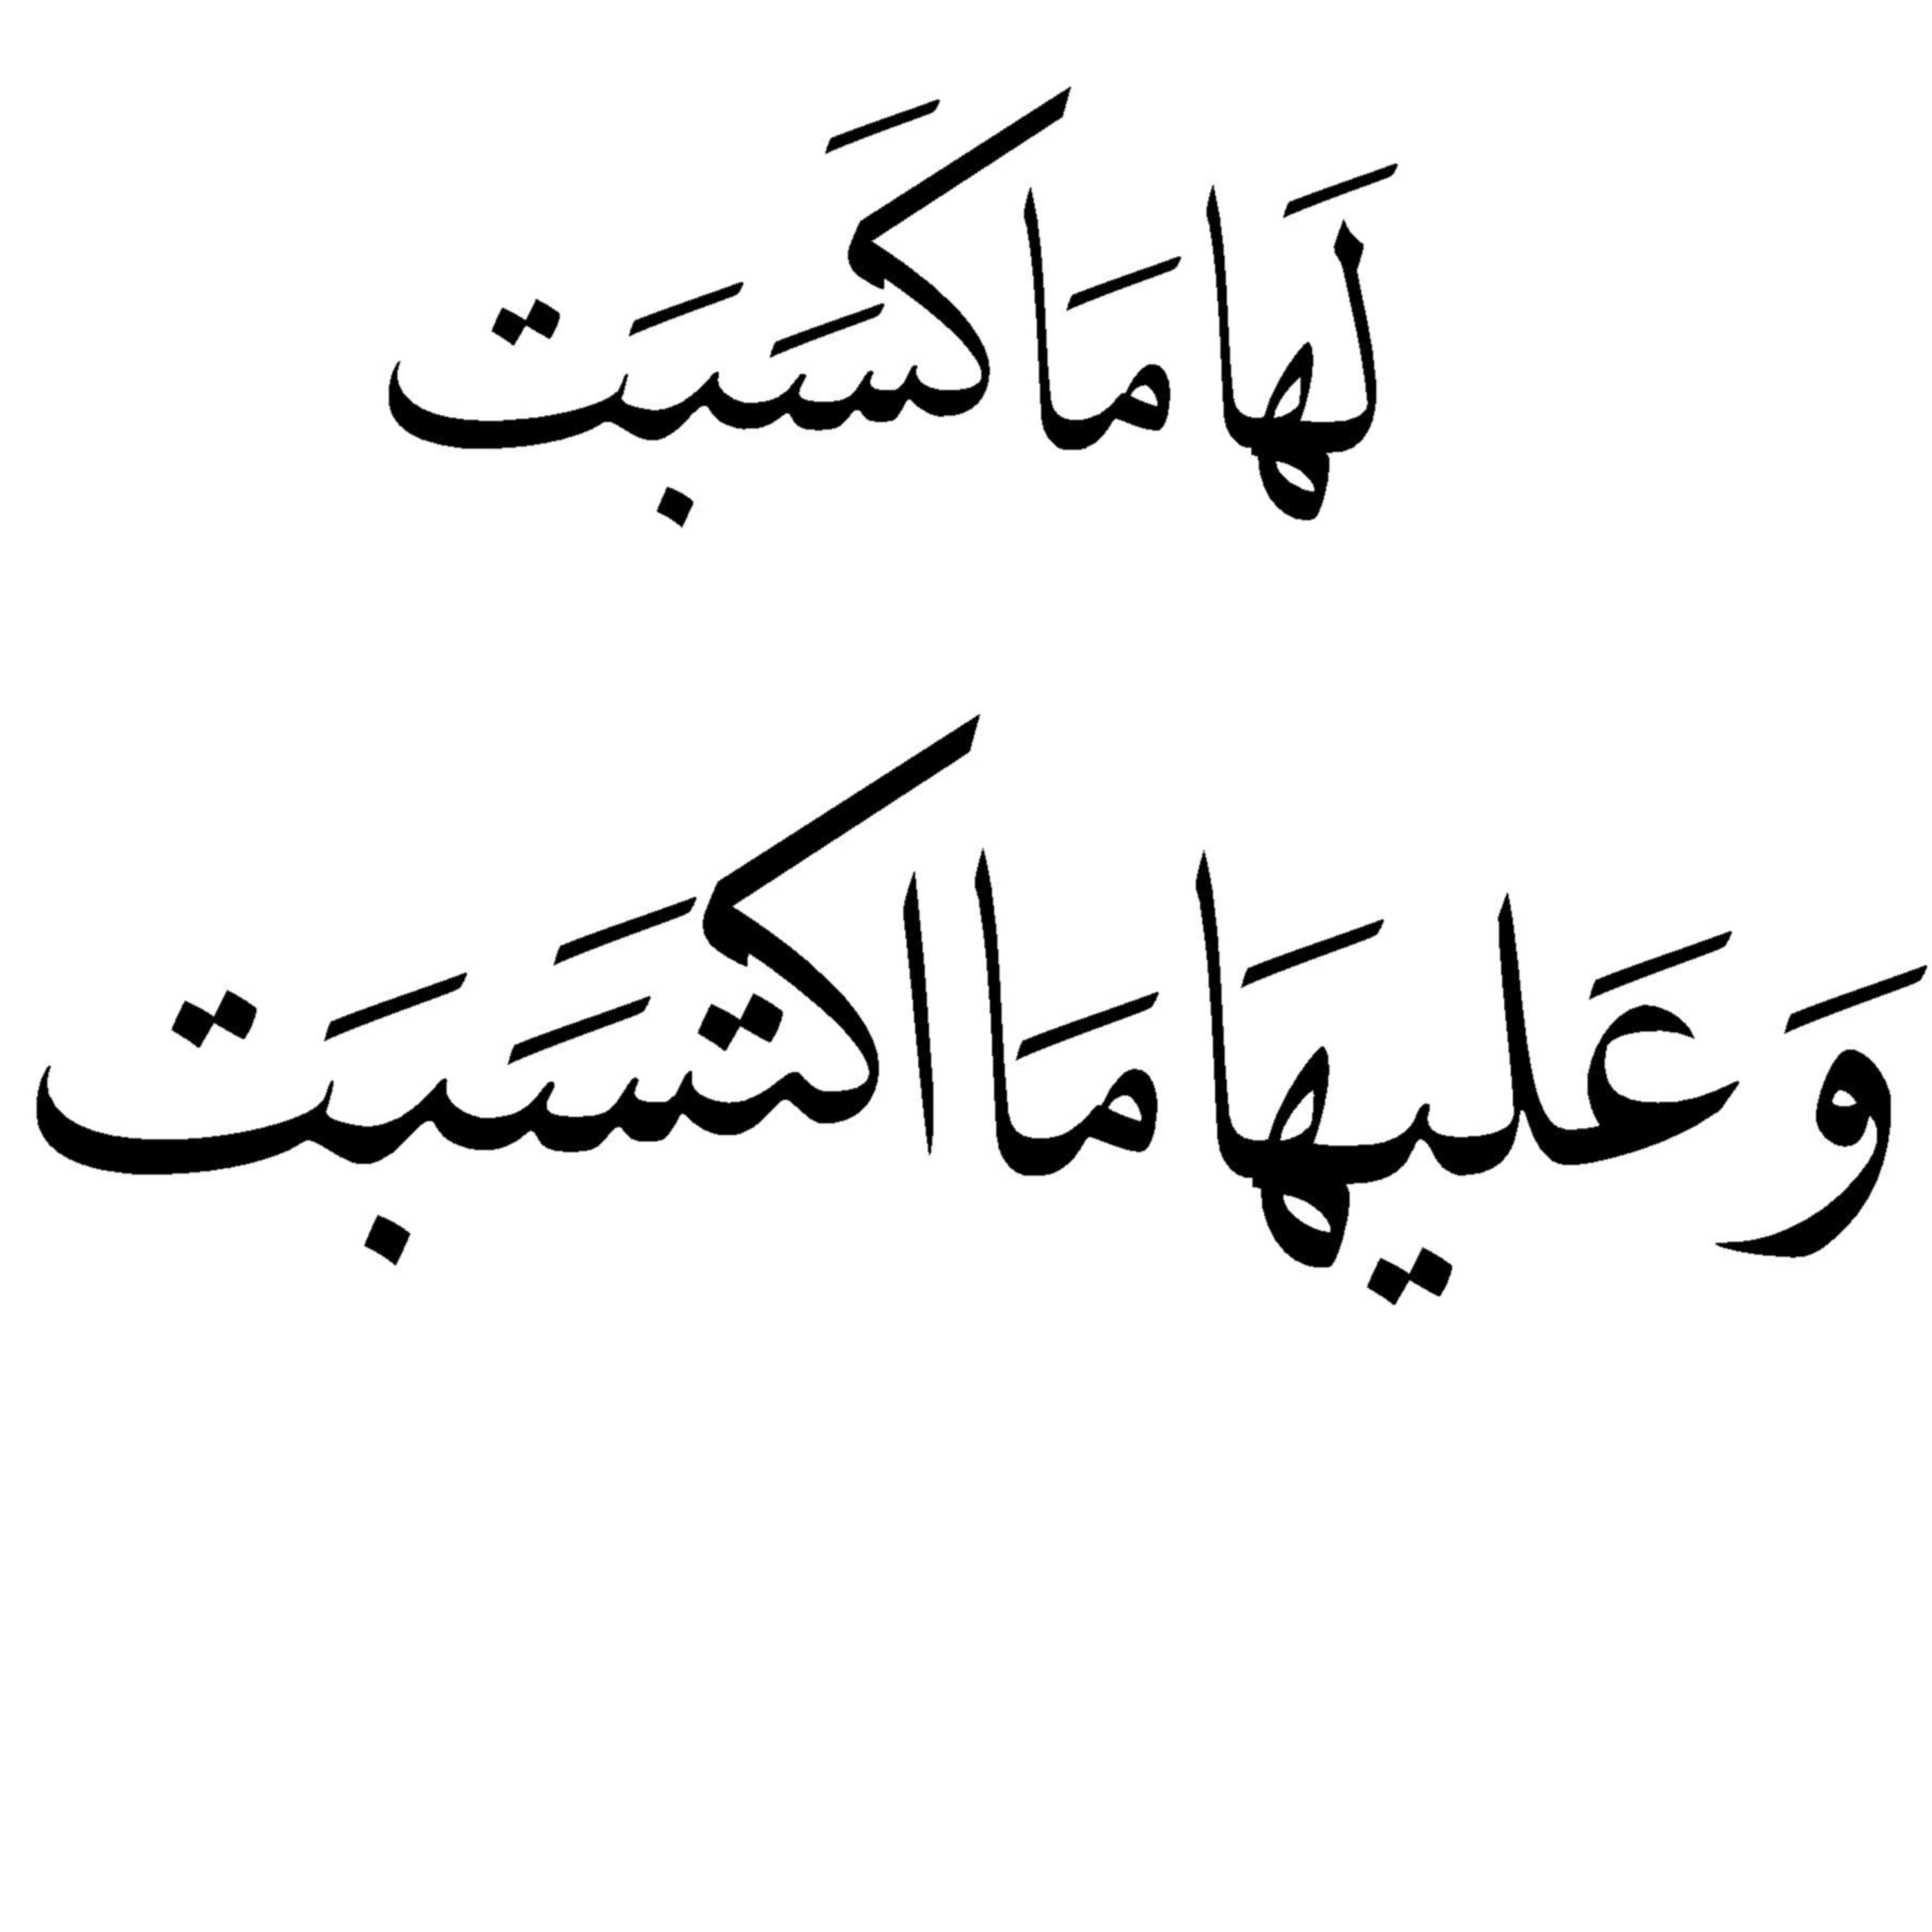 لَها مَا كَسَبَت
وَعَليهَا مَا اكتَسَبَت